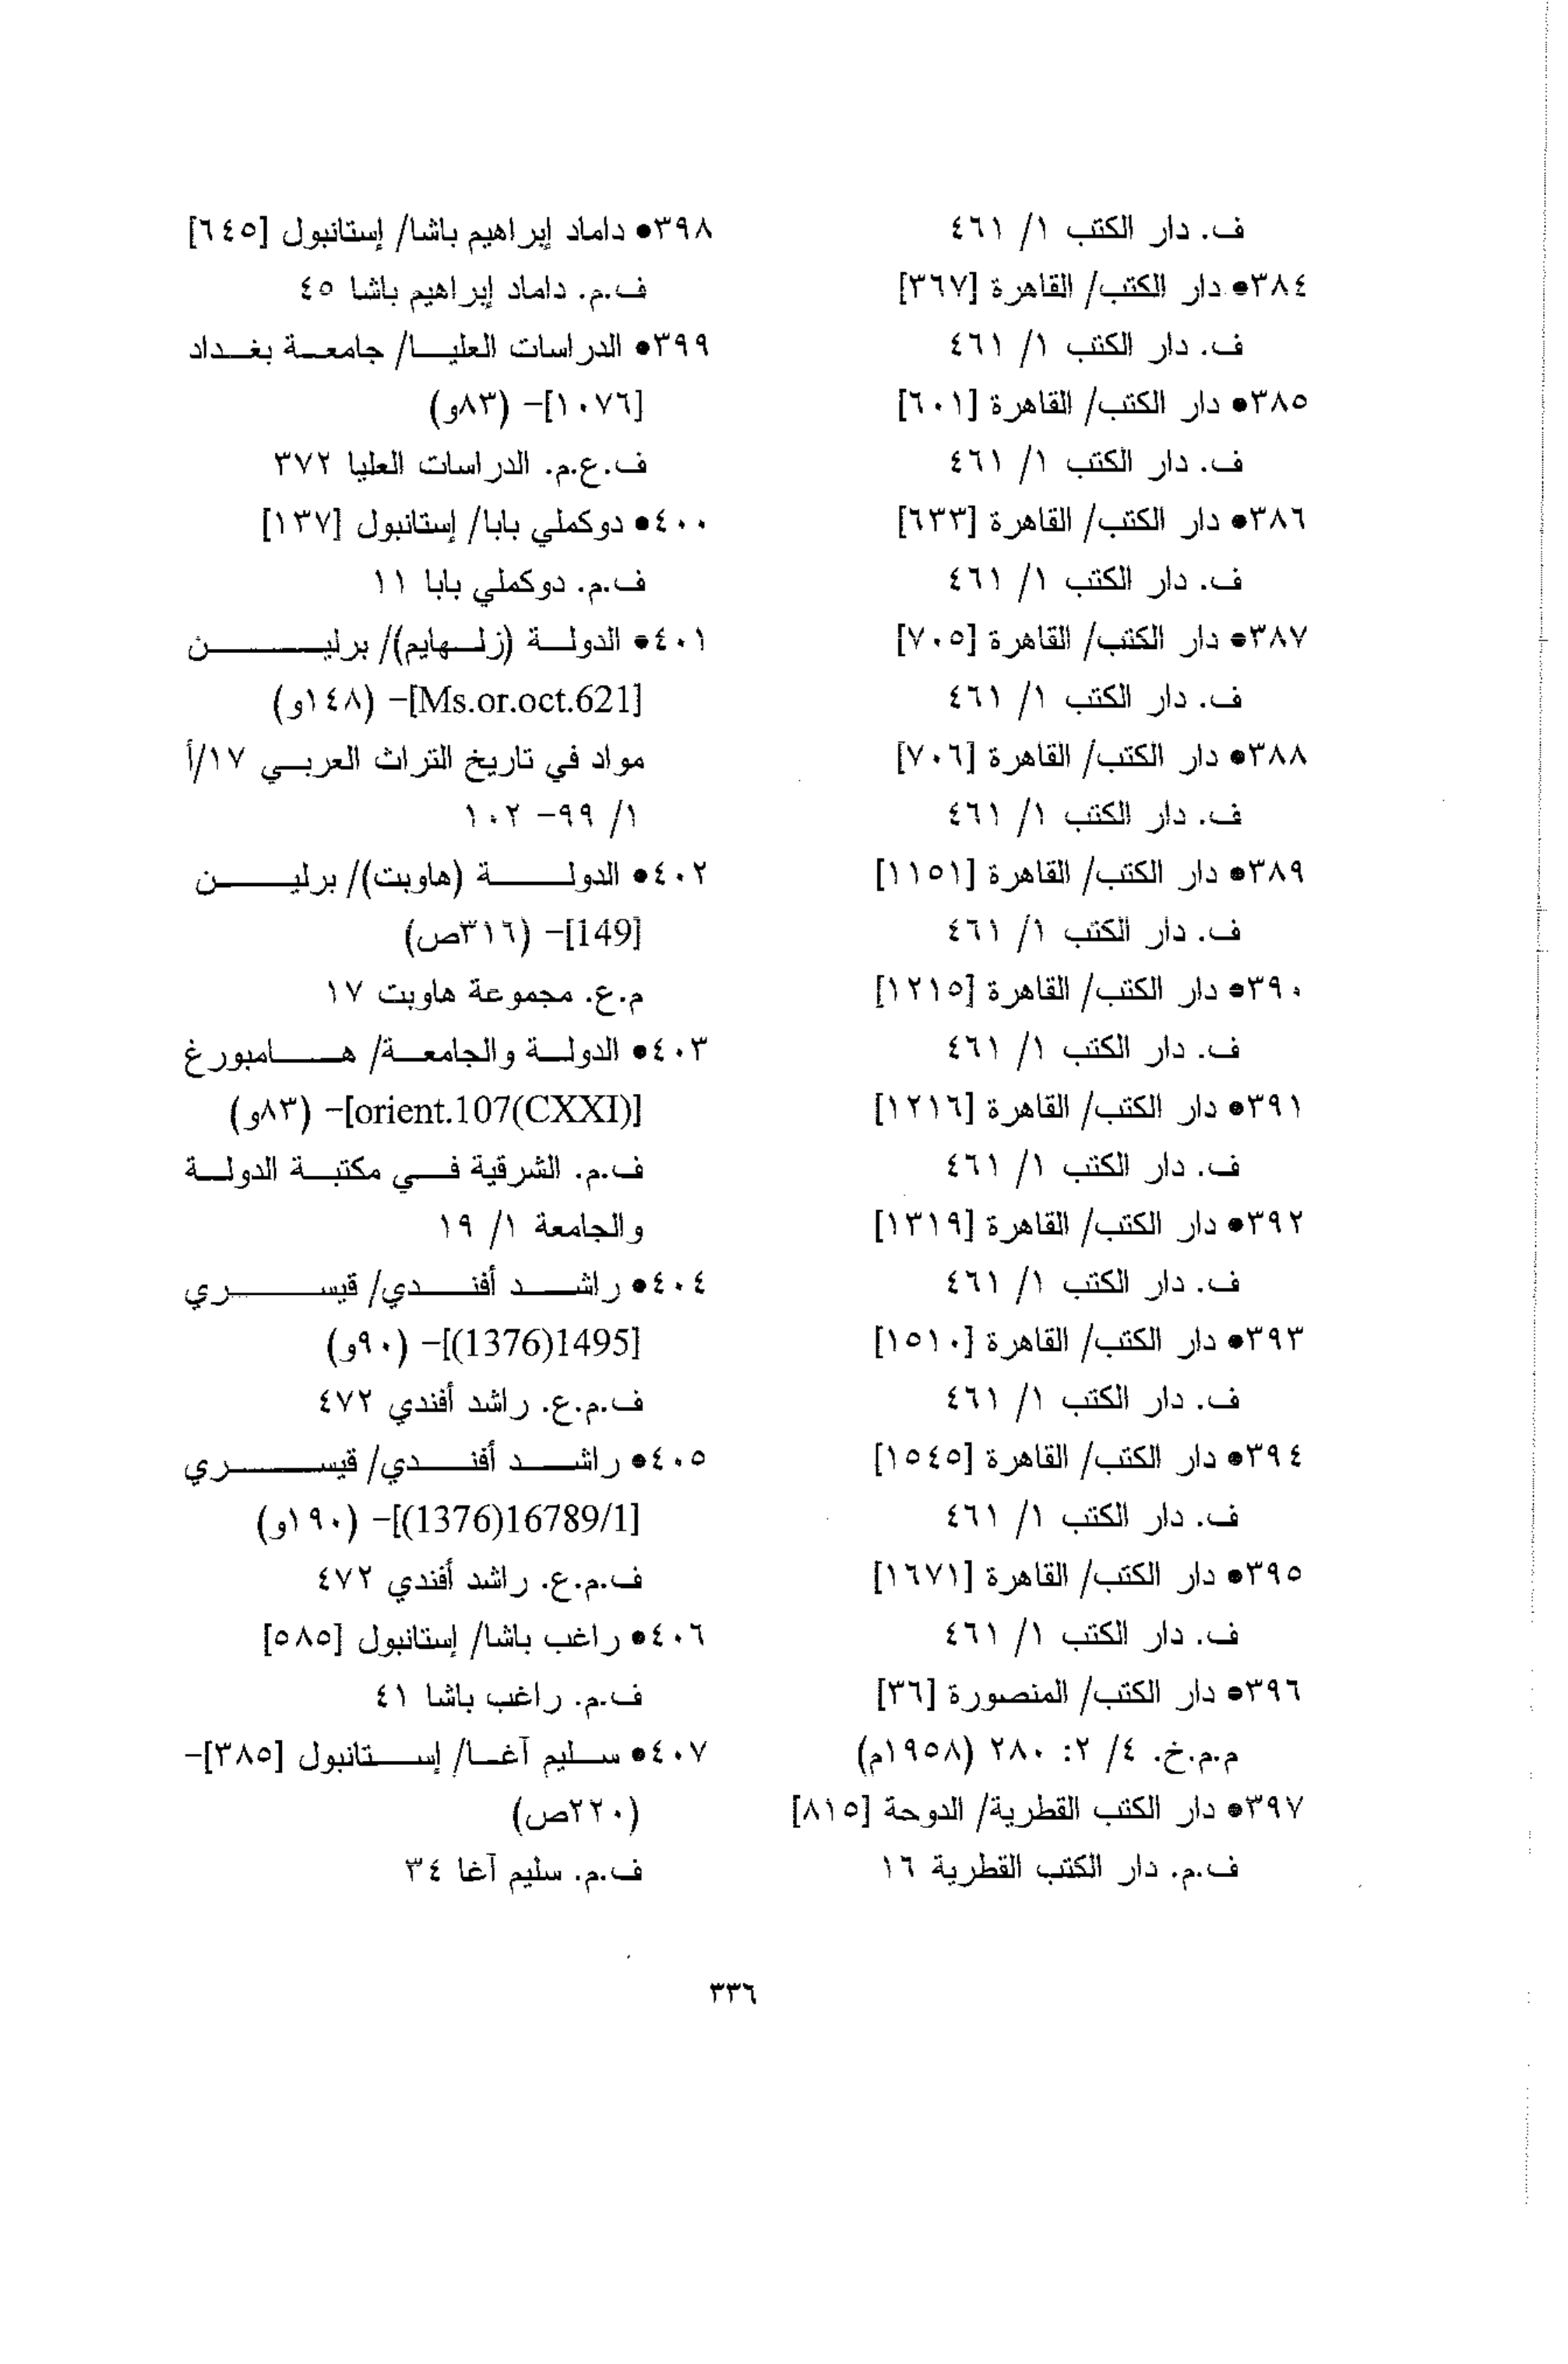 ف. دار الكتب ١/ ٤٦١
٣٨٤• دار الكتب/ القاهرة [٣٦٧]
ف. دار الكتب ١/ ٤٦١
٣٨٥• دار الكتب/ القاهرة [٦٠١]
ف. دار الكتب ١/ ٤٦١
٣٨٦• دار الكتب/ القاهرة [٦٣٣]
ف. دار الكتب ١/ ٤٦١
٣٨٧• دار الكتب/ القاهرة [٧٠٥]
ف. دار الكتب ١/ ٤٦١
٣٨٨• دار الكتب/ القاهرة [٧٠٦]
ف. دار الكتب ١/ ٤٦١
٣٨٩• دار الكتب/ القاهرة [١١٥١]
ف. دار الكتب ١/ ٤٦١
٣٩٠• دار الكتب/ القاهرة [١٢١٥]
ف. دار الكتب ١/ ٤٦١
٣٩١• دار الكتب/ القاهرة [١٢١٦]
ف. دار الكتب ١/ ٤٦١
٣٩٢• دار الكتب/ القاهرة [١٣١٩]
ف. دار الكتب ١/ ٤٦١
٣٩٣• دار الكتب/ القاهرة [١٥١٠]
ف. دار الكتب ١/ ٤٦١
٣٩٤• دار الكتب/ القاهرة [١٥٤٥]
ف. دار الكتب ١/ ٤٦١
٣٩٥• دار الكتب/ القاهرة [١٦٧١]
ف. دار الكتب ١/ ٤٦١
٣٩٦• دار الكتب/ المنصورة [٣٦]
م.م.خ. ٤/ ٢: ٢٨٠ (١٩٥٨م)
٣٩٧• دار الكتب القطرية/ الدوحة [٨١٥]
ف.م. دار الكتب القطرية ١٦
٣٩٨• داماد إبراهيم باشا/ إستانبول [٦٤٥]
ف.م. داماد إبراهيم باشا ٤٥
٣٩٩• الدراسات العليا/ جامعة بغداد
[١٠٧٦]- (٨٣و)
ف.ع.م. الدراسات العليا ٣٧٢
٤٠٠• دوكملي بابا/ إستانبول [١٣٧]
ف.م. دوكملي بابا ١١
٤٠١• الدولة (زلهايم)/ برلين
[Ms.or.oct.621]- (١٤٨و)
مواد في تاريخ التراث العربي ١٧/أ
١/ ٩٩- ١٠٢
٤٠٢• الدولة (هاوبت)/ برلين
[149]- (٣١٦ص)
م.ع. مجموعة هاوبت ١٧
٤٠٣• الدولة والجامعة/ هامبورغ
[orient.107(CXXI)]- (٨٣و)
ف.م. الشرقية في مكتبة الدولة
والجامعة ١/ ١٩
٤٠٤• راشد أفندي/ قيسري
[1495(1376)]- (٩٠و)
ف.م.ع. راشد أفندي ٤٧٢
٤٠٥• راشد أفندي/ قيسري
[16789/1(1376)]- (١٩٠و)
ف.م.ع. راشد أفندي ٤٧٢
٤٠٦• راغب باشا/ إستانبول [٥٨٥]
ف.م. راغب باشا ٤١
٤٠٧• سليم آغا/ إستانبول [٣٨٥]-
(٢٢٠ص)
ف.م. سليم آغا ٣٤
٣٣٦